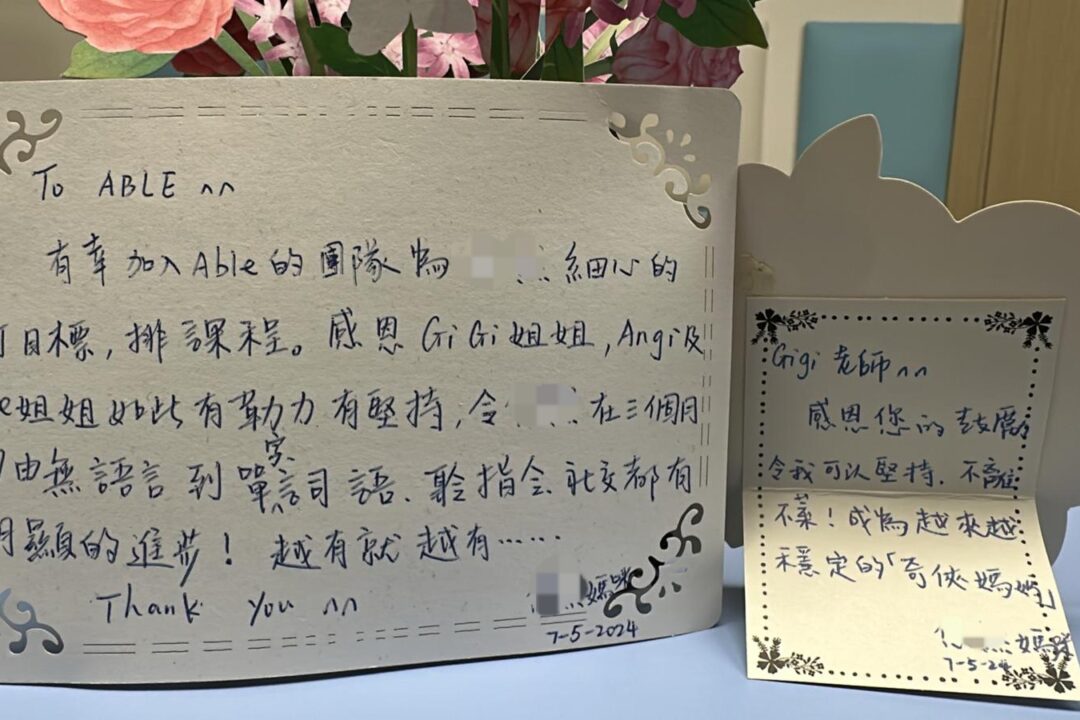 To ABLE ^^
有幸加入Able的團隊為 細心的
訂目標,排課程。感恩GiGi姐姐,Angi及
姐姐如此有動力有堅持,令 在三個月
由無語言到單字詞語、聆指令社交都有
明顯的進步!越有就越有……
Thank you ^^
媽咪
7-5-2024
Gigi老師^^
感恩您的鼓勵
令我可以堅持,不離
不棄!成為越來越
穩定的「奇俠媽媽」
媽咪
7-5-24